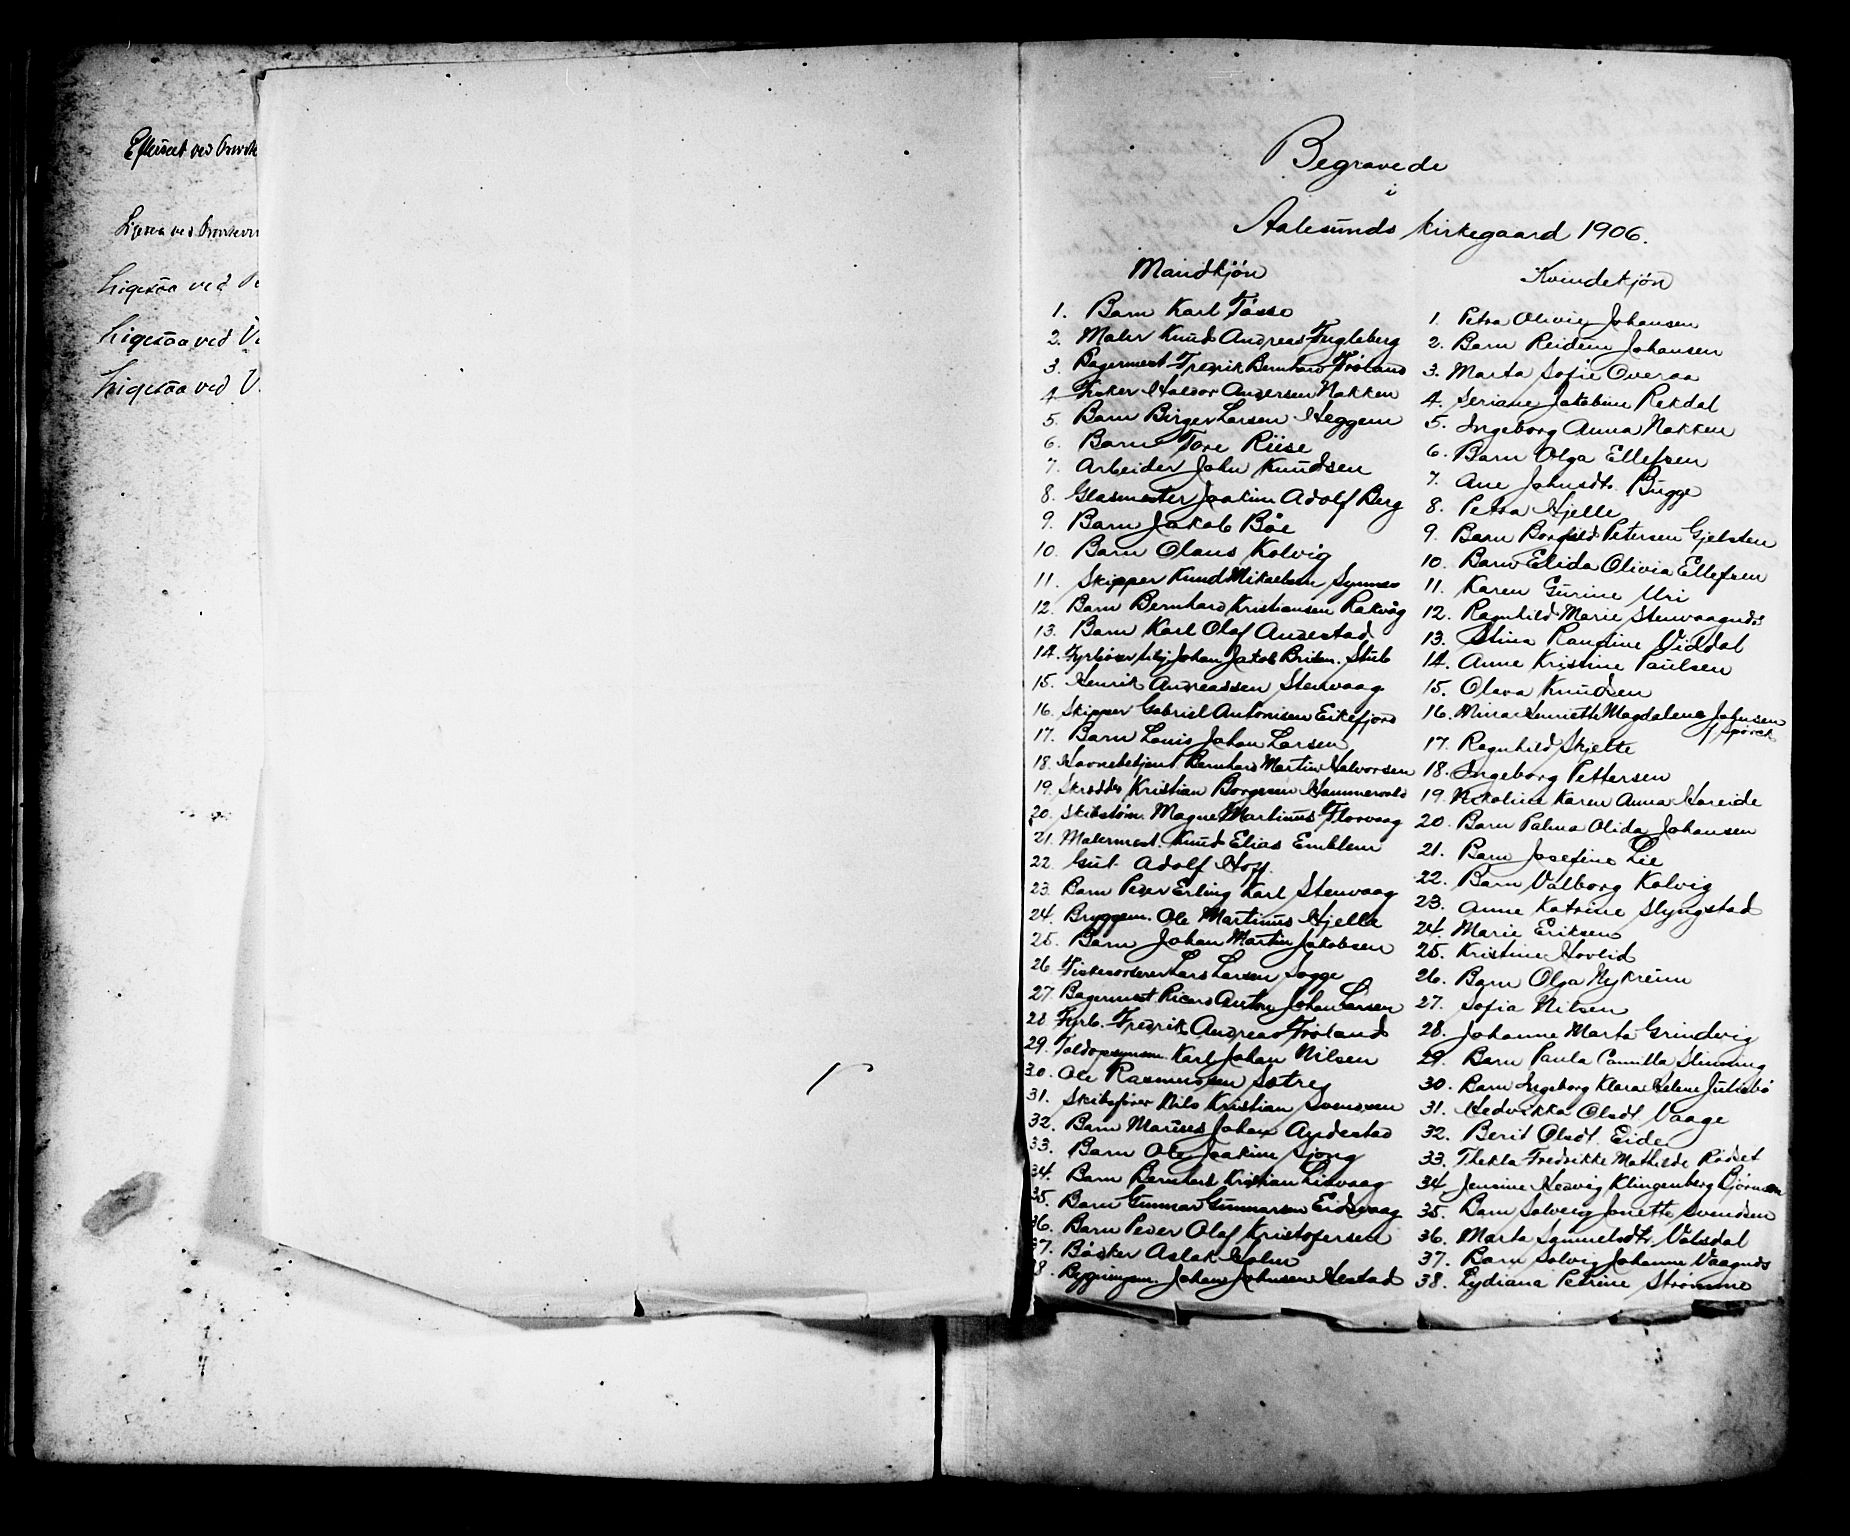 Efterseet ved
Ligesaa ved
Ligesaa ved
Ligesaa ved
Ligesaa ved
Begravede
i
Aalesunds kirkegaard 1906.
Mandkjön
1. Barn Karl Tösse
2. Maler Knud Andreas Fugleberg
3. Bagermest Fredrik Bernhard Fröland
4. Fisker Haldor Andersen Nakken
5. Barn Birger Larsen Heggem
6. Barn Tore Riise
7. Arbeider John Knudsen
8. Glasmester Joakim Adolf Berg
9. Barn Jakob Böe
10. Barn Olaus Kolvig
11. Skipper Knud Mikaelsen Synnes
12. Barn Bernhard Kristiansen Rakvåg
13. Barn Karl Olaf Andestad
14. Fyrböder Johan Jakob Stub
15. Henrik Andreassen Stenvaag
16. Skipper Gabriel Antonisen Eikefjord
17. Barn Louis Johan Larsen
18. Havnebetjent Bernhard Martin Halvorsen
19. Skrædder Kristian Borgesen Hammervold
20. Skibstöm. Magne Martinus Florvaag
21. Malermest. Knud Elias Emblem
22. Gut Adolf Hoff
23. Barn Peder Erling Karl Stenvaag
24. Bryggem. Ole Martinus Hjelle
25. Barn Johan Martin Jakobsen
26. Lars Larsen Sogge
27. Bagermest Ricard Anton Johan Larsen
28 Fyrb. Fredrik Andreas Fröland
29. Toldopsynsm. Karl Johan Nilsen
30. Ole Rasmussen Sætre
31. Skibsförer Nils Kristian
32. Barn Marius Johan Andestad
33. Barn Ole Joakim Sjong
34. Barn Bernhard Kristian Lisvaag
35. Barn Gunnar Gunnarsen Eidsvaag
36. Barn Peder Olaf Kristofersen
37. Bödker Aslak Holm
8. Bygningsm. Johan Johnsen Hestad
Kvindekjön
1. Petra Olivie Johansen
2. Barn Reidun Johansen
3. Marta Sofie Overaa
4. Seriane Jakobine Rekdal
5. Ingeborg Anna Nakken
6. Barn Olga Ellefsen
7. Ane Johnsdt. Bugge
8. Petra Hjelle
9. Barn Borghild Petersen Gjelsten
10. Barn Elida Olivia Ellefsen
11. Karen Gurine Uri
12. Ragnhild Marie Stenvaagnes
13. Stina Randine Viddal
14. Anne Kristine Paulsen
15. Olava Knudsen
16. Mina Henriette Magdalena Johnsen
f Spörck
17. Ragnhild Skjelte
18. Ingeborg Pettersen
19. Nikoline Karen Anna Hareide
20. Barn Palma Olida Johansen
21. Barn Josefine Lie
22. Barn Valborg Kolvig
23. Anne Katrine Slyngstad
24. Marie Eriksen
25. Kristine Hovlid
26. Barn Olga Nykreim
27. Sofia Nilsen
28. Johanne Marta Grindvig
29. Barn Paula Camilla Slinning
30. Barn Ingeborg Klara Helene Julsebö
31. Hedvikka Olsdt Vaage
32. Berit Olsdt. Eide
33. Thekla Fredrikke Mathilde Rödset
34 Jensine Hedvig Klingenberg Björnsen
35. Barn Solveig Jonette Svendsen
36. Marta Samuelsdtr. Vatsdal
37. Barn Solvig Johanne Vaagnes
38. Lydiana Petrine Strömme